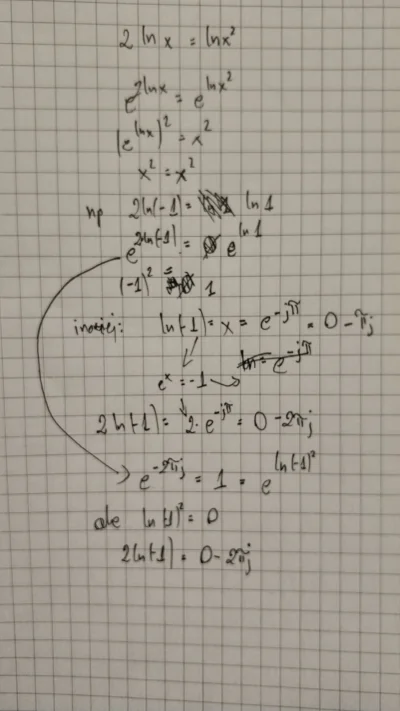 2 ln x = ln x²
e^{2 ln x} = e^{ln x²}
(e^{ln x})² = x²
x² = x²
np 2 ln(-1) = ln 1
e^{2ln(-1)} = e^{ln 1}
(-1)² = 1
inaczej: ln(-1) = x = e^{-jπ} = 0 - πj
e^x = -1 → e^{-jπ}
2 ln(-1) = 2 · e^{-jπ} = 0 - 2πj
e^{-2πj} = 1 = e^{ln(-1)²}
ale ln(-1)² = 0
2 ln(-1) = 0 - 2πj